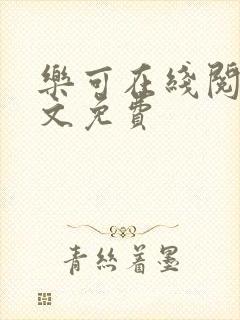 樂可在綫閱
文免費
青絲著墨